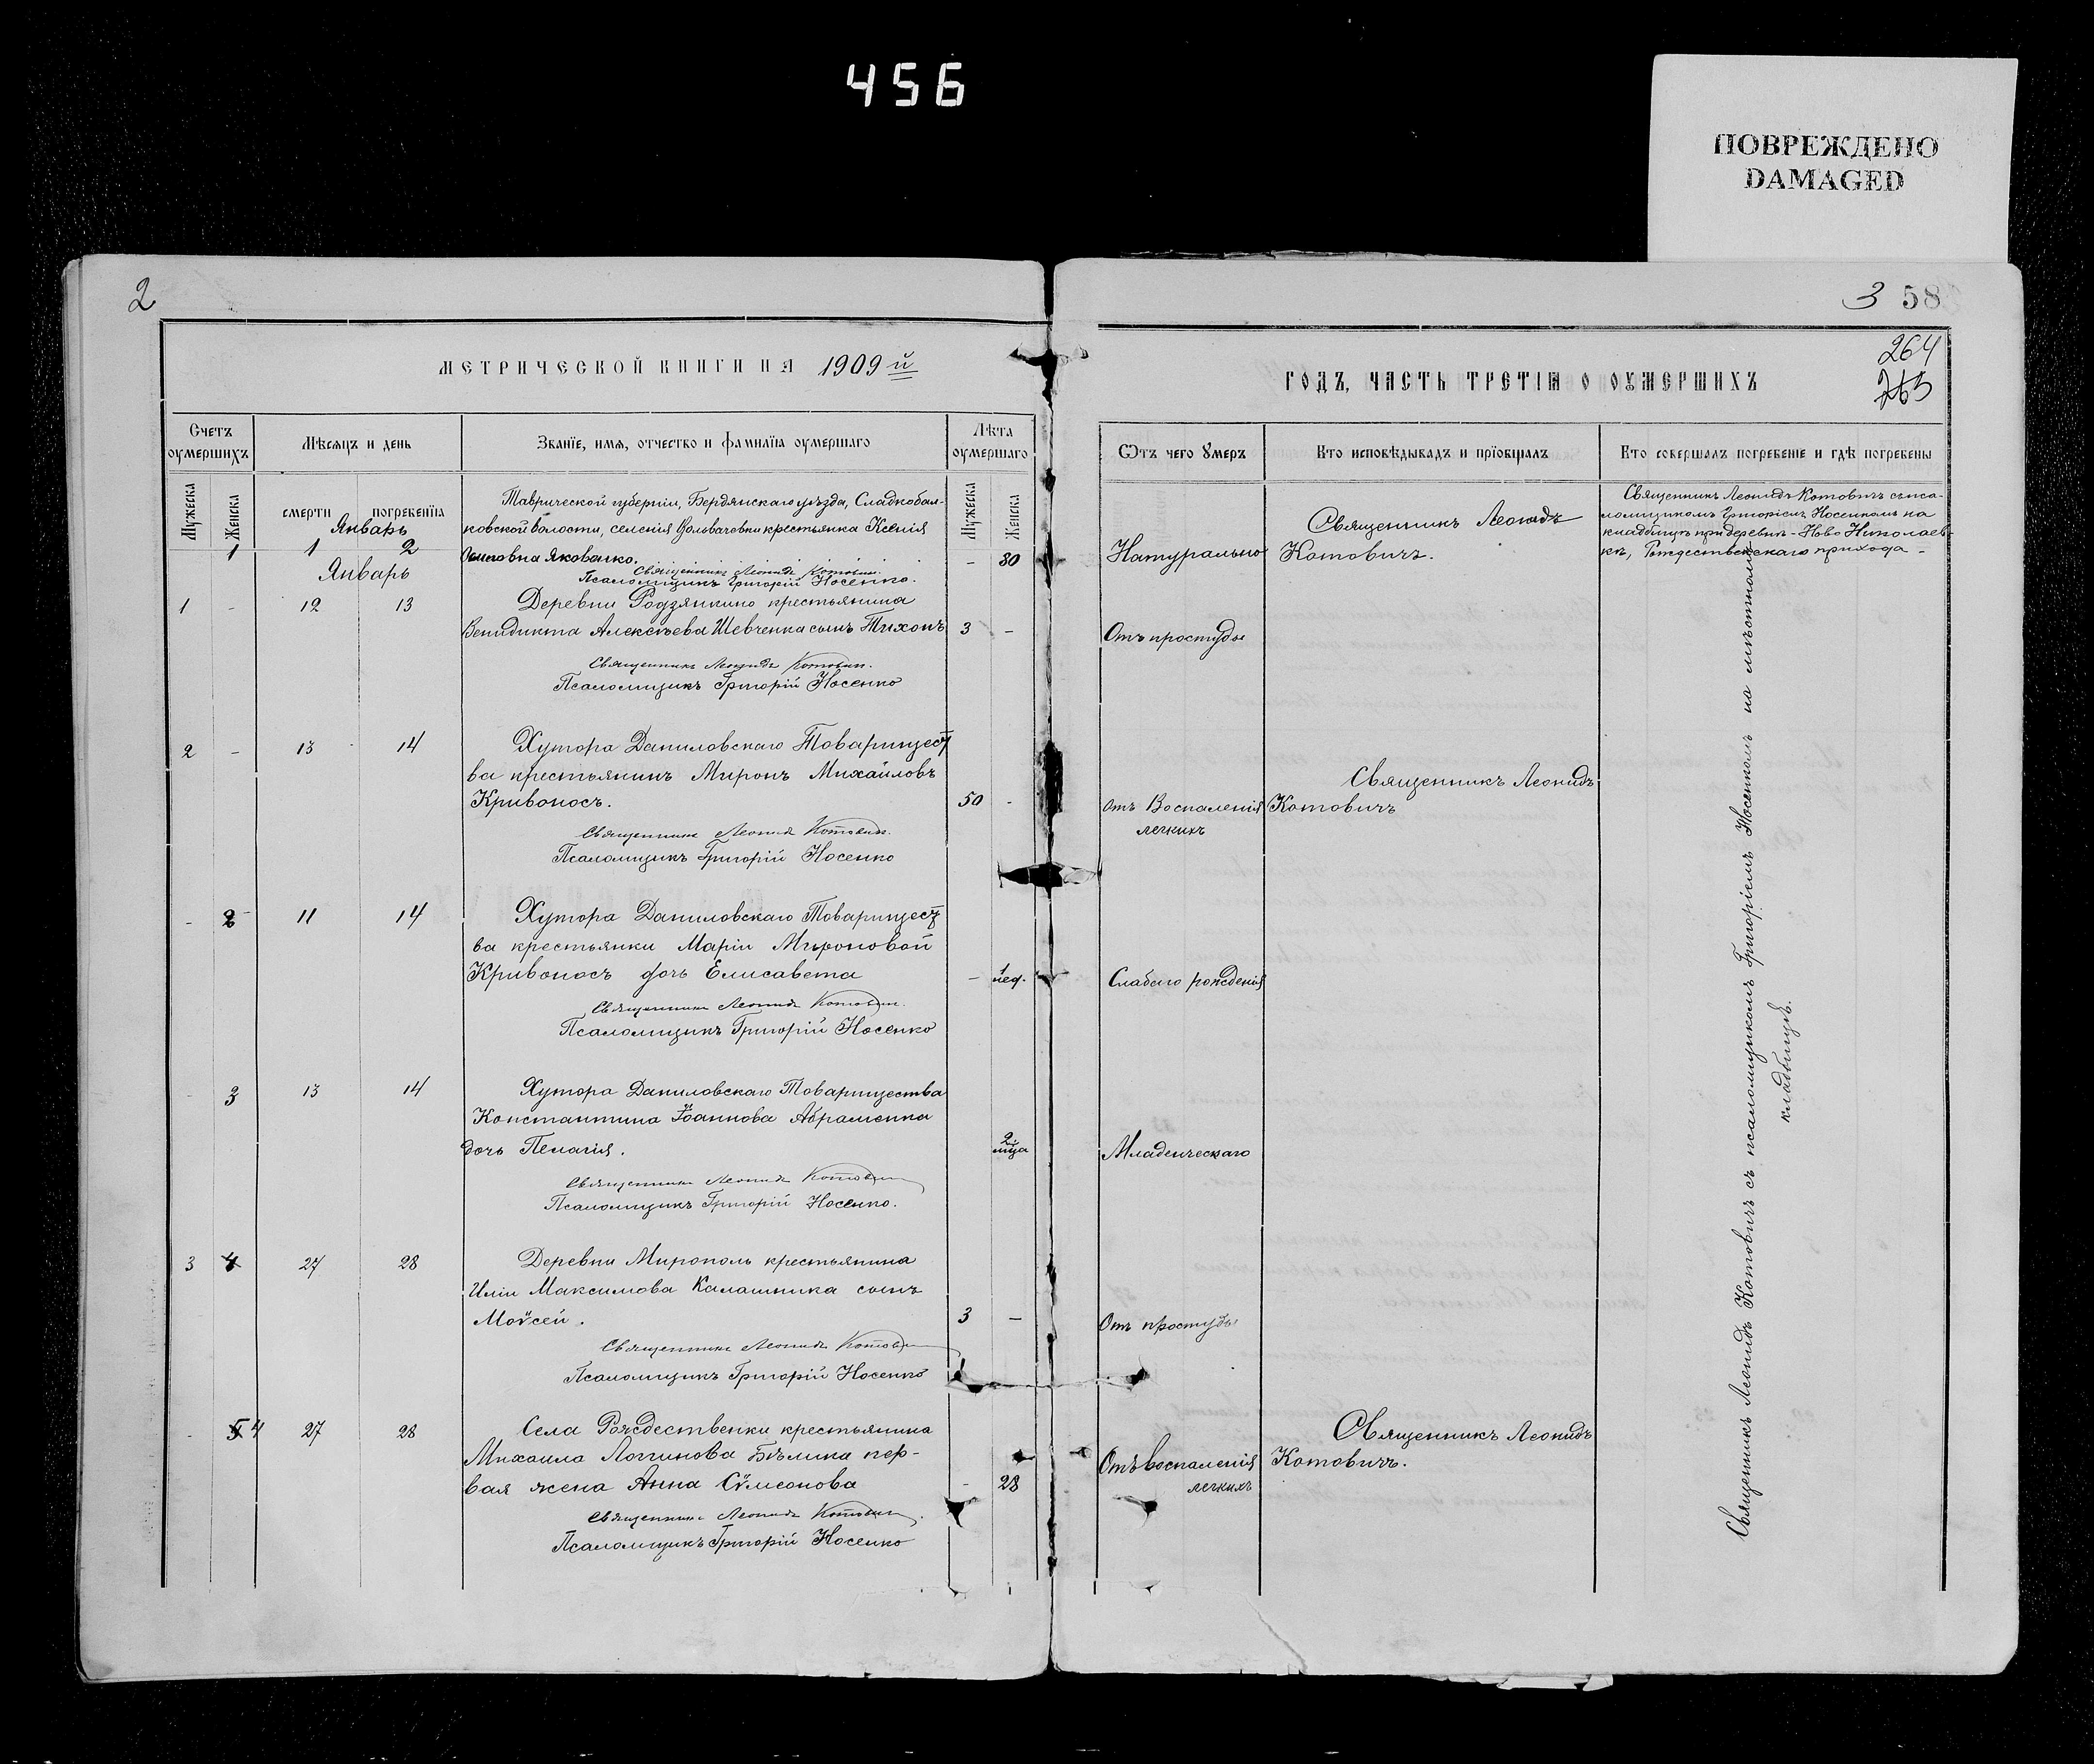 456
ПОВРЕЖДЕНО
DAMAGED
2
МЕТРИЧЕСКОЙ КНИГИ НА 1909 й
Счетъ оумершихъ
Мѣсяцъ и день
Званїе, имѧ, отчество и фамилїа оумершаго
Лѣта оумершаго
Мужеска
Женска
смерти
погребенїѧ
Мужеска
Женска
Январь
1 1 2
Таврической губерніи, Бердянскаго уѣзда, Сладкобал-
ковской волости, селенія крестьянка Ксенія
Яковенко.
- 80
Священникъ Леонидъ Котовичъ.
Псаломщикъ Григорій Носенко.
Январь
1 - 12 13
Деревни Родзянкино крестьянина
Венидикта Алексѣева Шевченка сынъ Тихонъ
3 -
Священникъ Леонидъ Котовичъ.
Псаломщикъ Григорій Носенко
2 - 13 14
Хутора Даниловскаго Товарищест
ва крестьянинъ Миронъ Михайловъ
Кривоносъ.
50 -
Священникъ Леонидъ Котовичъ.
Псаломщикъ Григорій Носенко
- 2 11 14
Хутора Даниловскаго Товарищест
ва крестьянки Маріи Мироновой
Кривоносъ дочь Елисавета
- 1 нед.
Священникъ Леонидъ Котовичъ.
Псаломщикъ Григорій Носенко
- 3 13 14
Хутора Даниловскаго Товарищества
Константина Іоаннова Абраменка
дочь Пелагія.
2 мца
Священникъ Леонидъ Котовичъ
Псаломщикъ Григорій Носенко.
3 4 27 28
Деревни Мирополь крестьянина
Иліи Максимова Калашника сынъ
Моѵсей.
3 -
Священникъ Леонидъ Котовичъ
Псаломщикъ Григорій Носенко
- 5 4 27 28
Села Рождественки крестьянина
Михаила Логгинова Бѣлика пер-
вая жена Анна Сѵмеонова
- 28
Священникъ Леонидъ Котовичъ.
Псаломщикъ Григорій Носенко
3 58
264
263
ГОДЪ, ЧАСТЬ ТРЕТІѦ О ОУМЕРШИХЪ
Ѿтъ чего Умеръ
Кто исповѣдывалъ и прїобщалъ
Кто совершалъ погребенїе и гдѣ погребены
Натурально
Священникъ Леонидъ
Котовичъ.
Священникъ Леонидъ Котовичъ съ пса-
ломщикомъ Григоріемъ Носенкомъ на
кладбищѣ при деревнѣ - Ново Николаев-
кѣ, Рождественскаго прихода -
Отъ простуды
Отъ Воспаленія
легкихъ
Священникъ Леонидъ
Котовичъ
Слабаго рожденія
Младенческаго
Отъ простуды
Отъ воспаленія
легкихъ
Священникъ Леонидъ
Котовичъ.
Священникъ Леонидъ Котовичъ съ псаломщикомъ Григоріемъ Носенкомъ на мѣстномъ
кладбищѣ.